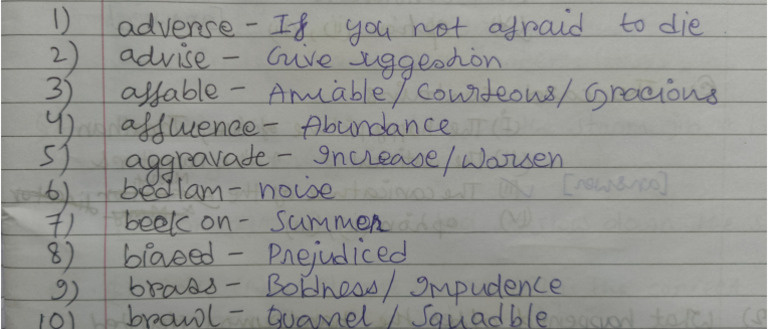 1) adverse - If you not afraid to die
2) advise - Give suggestion
3) affable - Amiable / Courteous / Gracious
4) affluence - Abundance
5) aggravate - Increase / Warsen
6) bedlam - noise
7) beck on - Summer
8) biased - Prejudiced
9) brass - Boldness / Impudence
10) brawl - Quarrel / Squadble